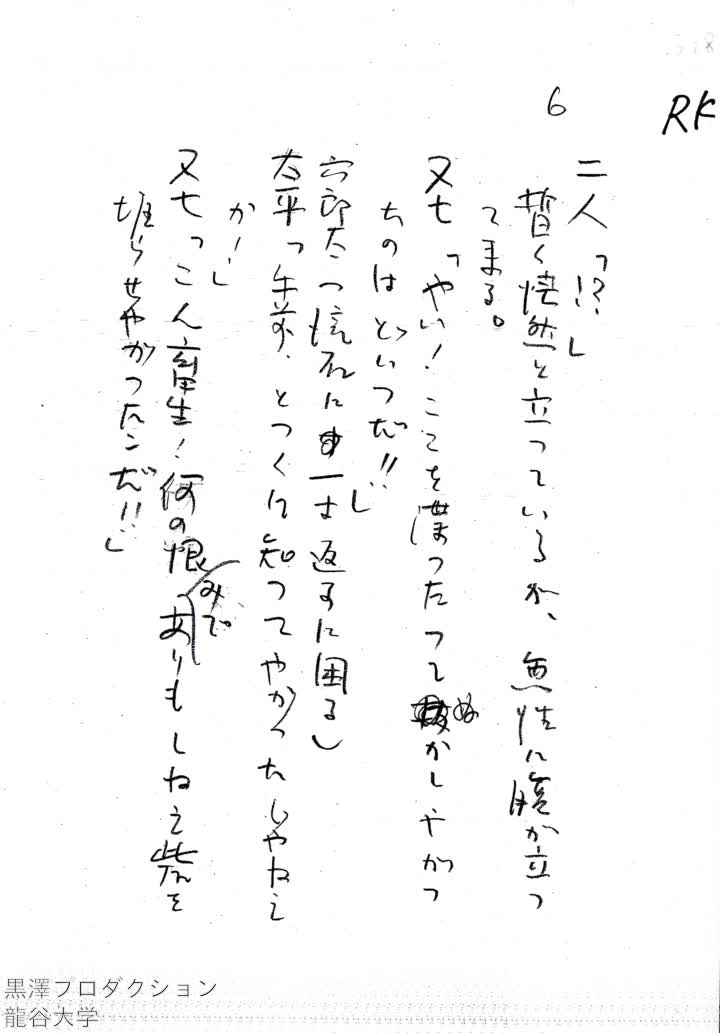 RK
6
二人「!?」
暫く惘然と立っているが、無性に腹が立つ
て来る。
又七「やい！こゝを葉つたつてぬかしやがつ
たのはどいつだ!!」
六郎太（流石に一寸返事に困る）
太平「午前、とつくに知つてやがつたじやねえ
か！」
又七「こん畜生！何の恨みでありもしねえ柴を
堀らせやがつたンだ!!」
黒澤プロダクション
龍谷大学